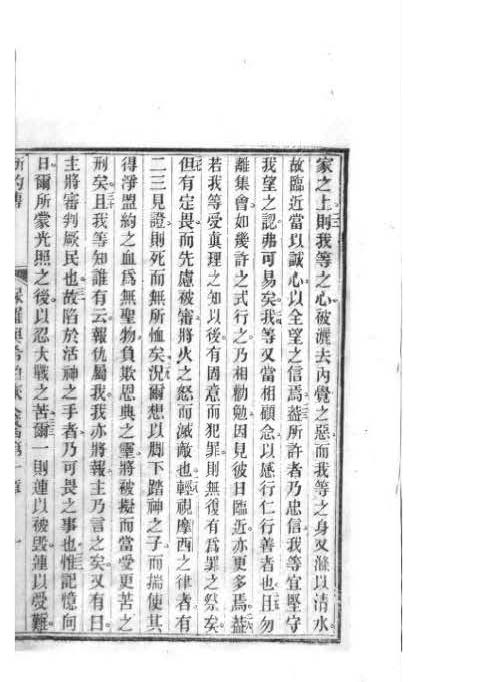 家之上則我等之心被灑去內覺之惡而我等之身又滌以清水
故臨近當以誠心以全望之信焉蓋所許者乃忠信我等宜堅守
我望之認弗可易矣我等又當相顧念以感行仁行善者也且勿
離集會如幾許之式行之乃相勸勉因見彼日臨近亦更多焉蓋
若我等受眞理之知以後有固意而犯罪則無復有爲罪之祭矣
但有定畏而先慮被審將火之怒而滅敵也輕視摩西之律者有
二三見證則死而無所恤矣況爾想以脚下踏神之子而揣使其
得淨盟約之血爲無聖物負欺恩典之靈將被擬而當受更苦之
刑矣且我等知誰有云報仇屬我我亦將報主乃言之矣又有曰
主將審判厥民也故陷於活神之手者乃可畏之事也惟記憶向
日爾所蒙光照之後以忍大戰之苦爾一則連以被毀連以受難